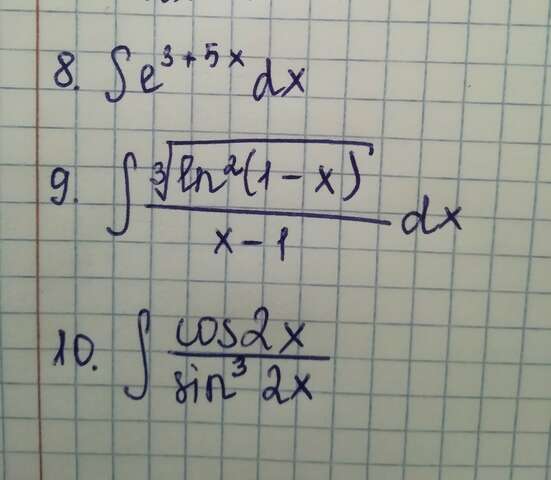 8. ∫e^{3+5x} dx
9. ∫ \frac{\sqrt[3]{ln^2(1-x)}}{x-1} dx
10. ∫ \frac{cos2x}{sin^3 2x}